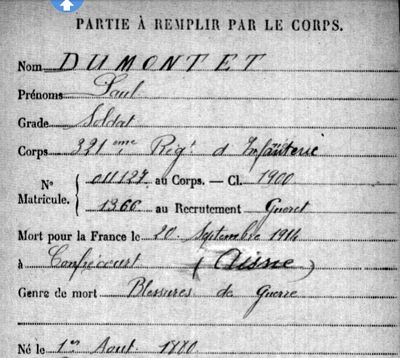 PARTIE À REMPLIR PAR LE CORPS.
Nom DUMONTET
Prénoms Paul
Grade Soldat
Corps 321ème Régt d'Infanterie
N° Matricule. 011127 au Corps. — Cl. 1900
1366 au Recrutement Guéret
Mort pour la France le 20 Septembre 1914
à Confrécourt (Aisne)
Genre de mort Blessures de Guerre
Né le 1er Août 1880